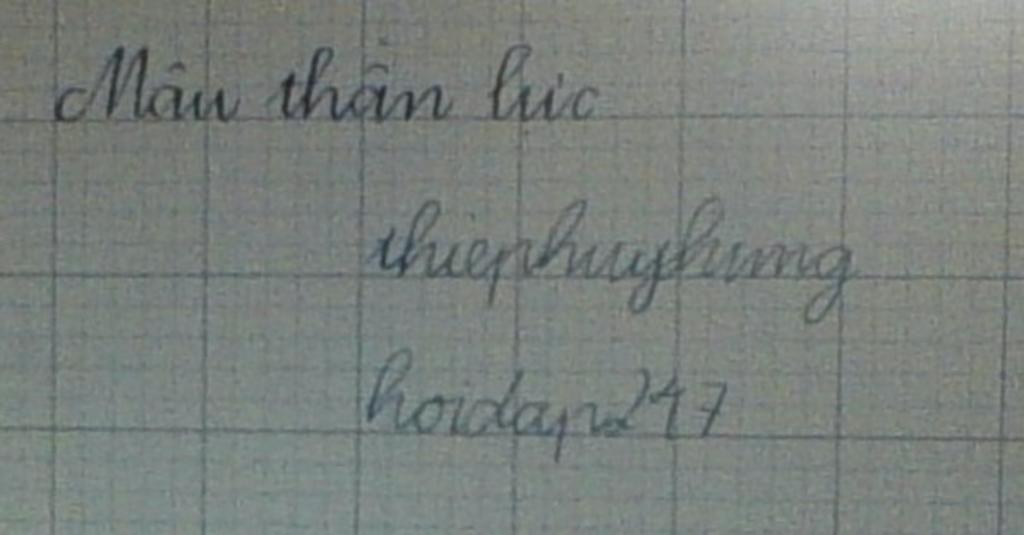 Mâu thân lúc
thiephuyhung
hoidap247